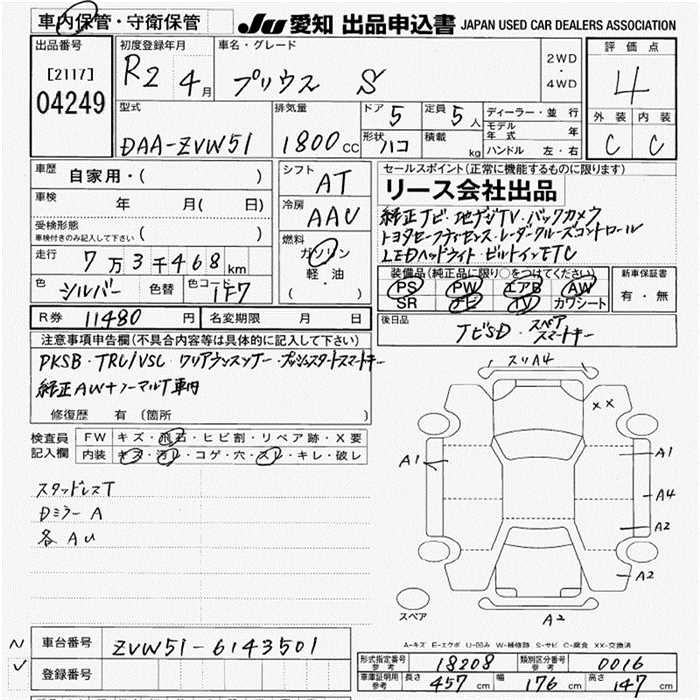 車内保管・守衛保管
JU 愛知 出品申込書 JAPAN USED CAR DEALERS ASSOCIATION
出品番号
[2117]
04249
初度登録年月
R2 4月
車名・グレード
プリウス S
2WD
・
4WD
評価点
4
外装 内装
C C
型式
DAA-ZVW51
排気量
1800cc
ドア 5
定員 5人
形状 ハコ
積載 kg
ディーラー・並行
モデル年式 年
ハンドル 左・右
車歴
自家用・( )
車検
年 月( 日)
受検形態
車検付きのみ記入して下さい ( )
走行
7万3千468km
色 シルバー 色替 色コード 1F7
シフト
AT
冷房
AAU
燃料
ガソリン
軽・油
( )
セールスポイント(正常に機能するものに限ります)
リース会社出品
純正ナビ・地デジTV・バックカメラ
トヨタセーフティセンス・レーダークルーズコントロール
LEDヘッドライト・ビルトインETC
装備品(純正品に限り○をつけてください)
PS PW エアB AW
SR ナビ TV カワシート
新車保証書
有・無
R券 11480円 名変期限 月 日
後日品
ナビSD・スペアスマートキー
注意事項申告欄(不具合内容等は具体的に記入して下さい)
PKSB・TRC/VSC・クリアランスソナー・プッシュスタートスマートキー
純正AW+ノーマルT車内
修復歴 有(箇所 )
検査員記入欄
FW キズ・飛石・ヒビ割・リペア跡・X要
内装 キズ・汚レ・コゲ・穴・スレ・キレ・破レ
スタッドレスT
Dミラー A
各AU
スリA4
XX
A1
A1
A4
A2
A2
A2
スペア
A-キズ E-エクボ U-凹み W-補修跡 S-サビ C-腐食 XX-交換済
車台番号 ZVW51-6143501
登録番号
形式指定番号参考 18208 類別区分番号参考 0016
車庫証明用参考 長さ 457cm 幅 176cm 高さ 147cm